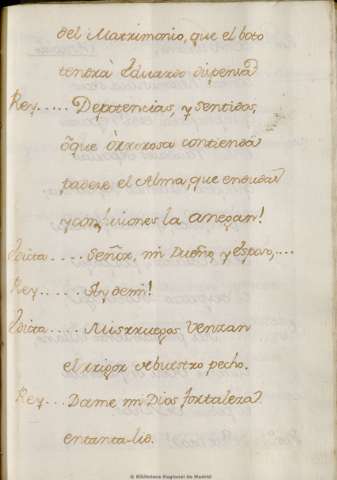 del Matrimonio, que el boto
tendrà Eduardo dispensa
Rey..... Depotencias, y sentidos,
ô que òrrorosa contienda
padeze el Alma, que en dudas
y confuciones la anegan!
Edicta.... Señor, mi Dueño, y Esposo,....
Rey..... Ay demi!
Edicta..... Misrruegos Venzan
el rrigor vebuestro pecho.
Rey... Dame mi Dios fortaleza
entanta lid.
© Biblioteca Regional de Madrid